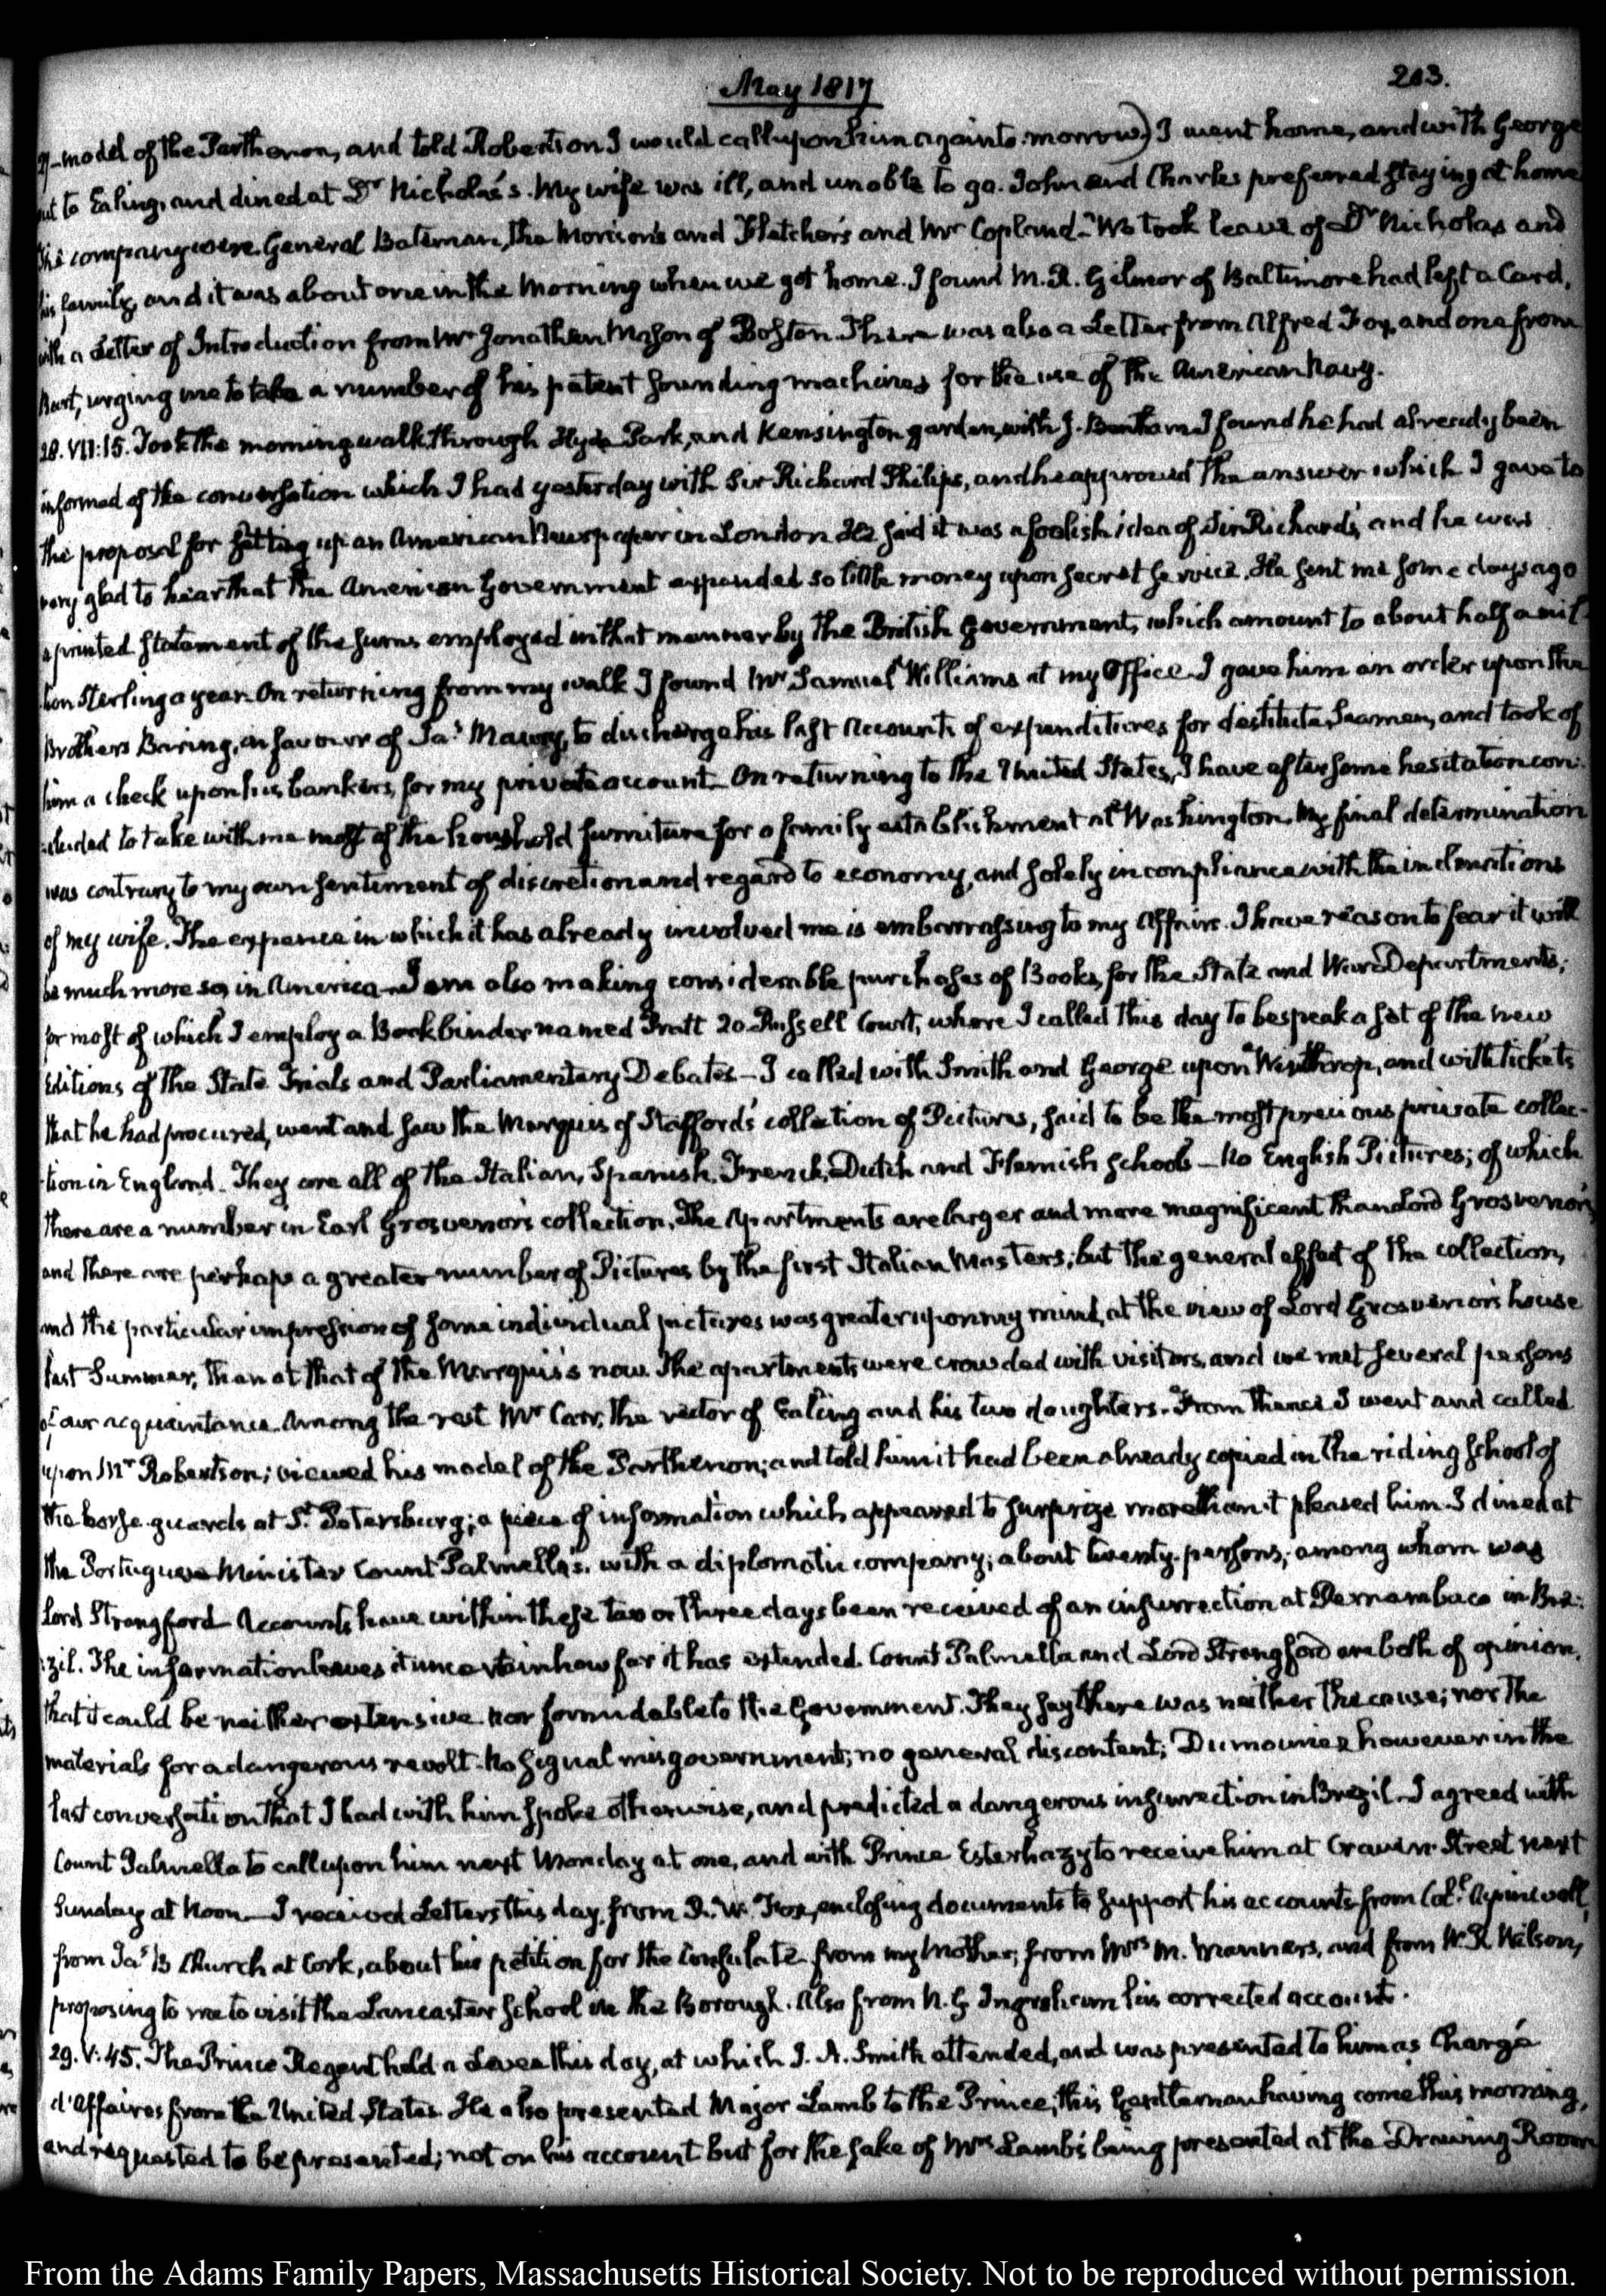 May 1817
203.
model of the Parthenon, and told Robertson I would call upon him again to-morrow) I went home, and with George
out to Ealing, and dined at Dr Nicholas's. My wife was ill, and unable to go. John and Charles preferred staying at home
The company were General Bateman, the Morison's and Fletcher's and Mr Copland. We took leave of Dr Nicholas and
his family, and it was about one in the morning when we got home. I found M. R. Gilmor of Baltimore had left a Card,
with a Letter of Introduction from Mr Jonathan Mason of Boston. There was also a Letter from Alfred Fox, and one from
Burt, urging me to take a number of his patent sounding machines for the use of the American Navy.
28. VII:15. Took the morning walk through Hyde Park, and Kensington garden, with J. Bentham I found he had already been
informed of the conversation which I had yesterday with Sir Richard Philips, and he approved the answer which I gave to
the proposal for setting up an American Newspaper in London He said it was a foolish idea of Sir Richard's, and he was
very glad to hear that the American Government expended so little money upon secret service. He sent me some days ago
a printed statement of the sums employed in that manner by the British Government, which amount to about half a mil-
lion Sterling a year. On returning from my walk I found Mr Samuel Williams at my Office. I gave him an order upon the
Brothers Baring, in favour of Jas Maury, to discharge his last Accounts of expenditures for destitute Seamen, and took of
him a check upon his bankers, for my private account. On returning to the United States, I have after some hesitation con-
cluded to take with me most of the household furniture for a family establishment at Washington. My final determination
was contrary to my own sentiment of discretion and regard to economy, and solely in compliance with the inclinations
of my wife. The expence in which it has already involved me is embarrassing to my Affairs. I have reason to fear it will
be much more so, in America. I am also making considerable purchases of Books, for the State and War Departments;
for most of which I employ a Bookbinder named Pratt 20 Russell Court, where I called this day to bespeak a set of the new
Editions of the State Trials and Parliamentary Debates — I called with Smith and George upon Winthrop, and with tickets
that he had procured, went and saw the Marquis of Stafford's collection of Pictures, said to be the most precious private collec-
tion in England. They are all of the Italian, Spanish, French, Dutch and Flemish Schools — No English Pictures; of which
there are a number in Earl Grosvenor's collection. The apartments are larger and more magnificent than Lord Grosvenor's
and there are perhaps a greater number of Pictures by the first Italian Masters; but the general effect of the collection,
and the particular impression of some individual pictures was greater upon my mind, at the view of Lord Grosvenor's house
last Summer, than at that of the Marquis's now. The apartments were crowded with visitors, and we met several persons
of our acquaintance. Among the rest Mr Carr, the rector of Ealing and his two daughters. From thence I went and called
upon Mr Robertson; viewed his model of the Parthenon; and told him it had been already copied in the riding school of
the horse-guards at St Petersburg; a piece of information which appeared to surprize more than it pleased him. I dined at
the Portuguese Minister Count Palmella's, with a diplomatic company; about twenty persons; among whom was
Lord Strangford. Accounts have within these two or three days been received of an insurrection at Pernambuco in Bra-
:zil. The information leaves it uncertain how far it has extended. Count Palmella and Lord Strangford are both of opinion,
that it could be neither extensive nor formidable to the Government. They say there was neither the cause; nor the
materials for a dangerous revolt. No signal misgovernment; no general discontent; Dumouriez however in the
last conversation that I had with him spoke otherwise, and predicted a dangerous insurrection in Brazil. I agreed with
Count Palmella to call upon him next Monday at one, and with Prince Esterhazy to receive him at Craven Street next
Sunday at Noon. — I received Letters this day, from R. W. Fox, enclosing documents to support his accounts from Col. Aspinwall,
from Jas B Church at Cork, about his petition for the Consulate from my Mother; from Mrs M. Manners, and from W. R. Wilson,
proposing to me to visit the Lancaster School in the Borough. Also from N. G Ingraham his corrected account.
29. V:45. The Prince Regent held a Levee this day, at which J. A. Smith attended, and was presented to him as Chargé
d'Affaires from the United States. He also presented Major Lamb to the Prince, this Gentleman having come this morning,
and requested to be presented; not on his account but for the sake of Mrs Lamb's being presented at the Drawing Room
From the Adams Family Papers, Massachusetts Historical Society. Not to be reproduced without permission.